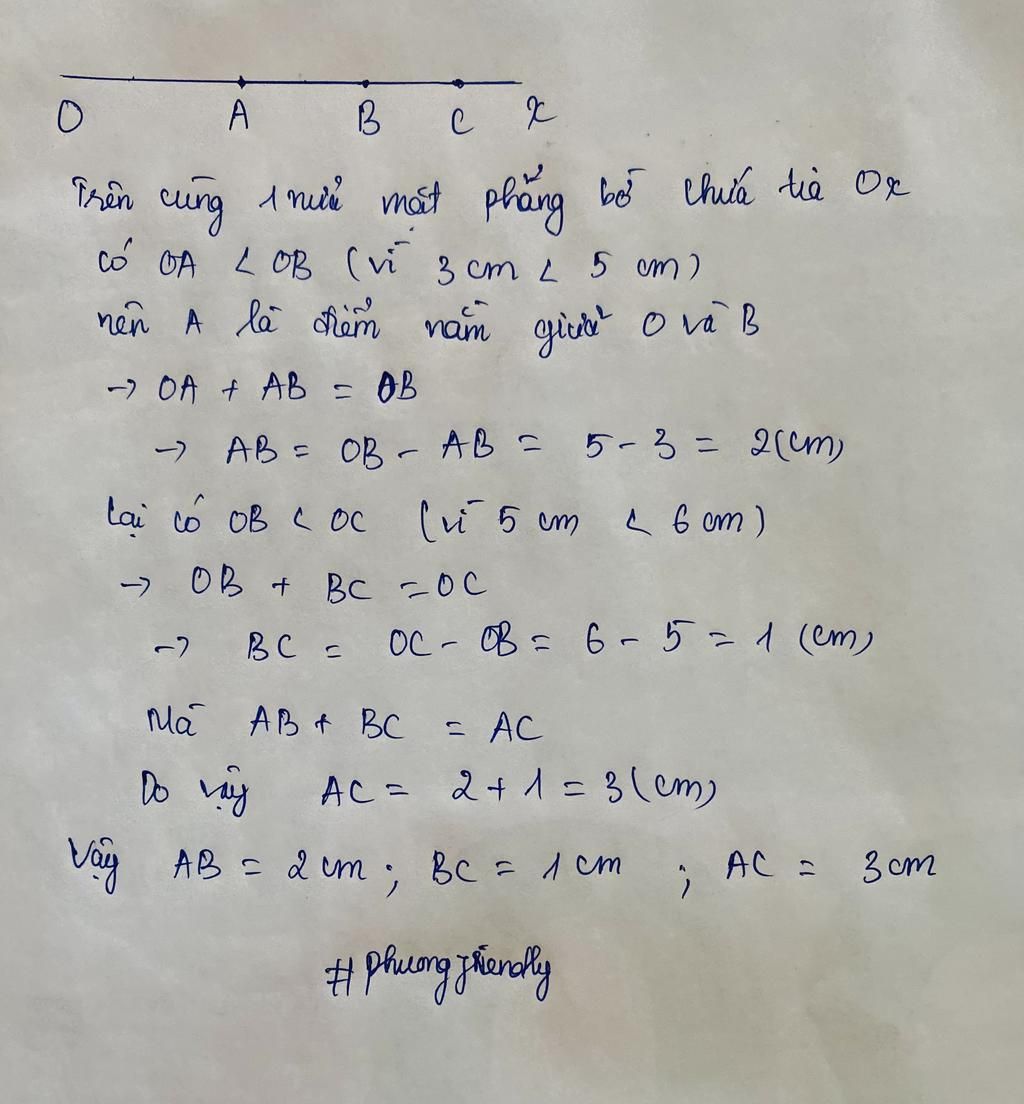 O A B C x
Trên cùng 1 nửa mặt phẳng bờ chứa tia Ox
có OA < OB (vì 3 cm < 5 cm)
nên A là điểm nằm giữa O và B
→ OA + AB = OB
→ AB = OB - AB = 5 - 3 = 2 (cm)
Lại có OB < OC (vì 5 cm < 6 cm)
→ OB + BC = OC
→ BC = OC - OB = 6 - 5 = 1 (cm)
Mà AB + BC = AC
Do vậy AC = 2 + 1 = 3 (cm)
Vậy AB = 2 cm ; BC = 1 cm ; AC = 3 cm
# phuongfriendly